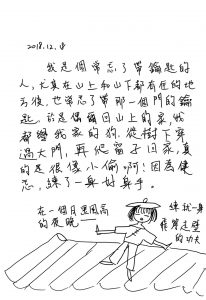 2018.12.
我是個常忘了帶鑰匙的
人,尤其在山上和山下都有住的地
方後,也常忘了帶那一個門的鑰
匙。於是偶爾回山上的家,我
都學我家的狗,從樹下穿
過大門,再爬窗子回家,真
的是很像小偷啊!因為健
忘,練了一身好身手。
在一個月黑風高
的夜晚——
練就一身
飛簷走壁
的功夫